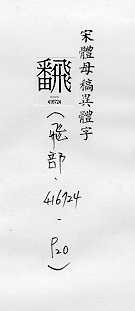 宋體母稿異體字
飜
416724
(飛部.416724-P20)